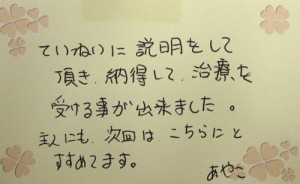 ていねいに説明をして
頂き、納得して、治療を
受ける事が出来ました。
主人にも、次回は、こちらにと
すすめてます。
あやこ